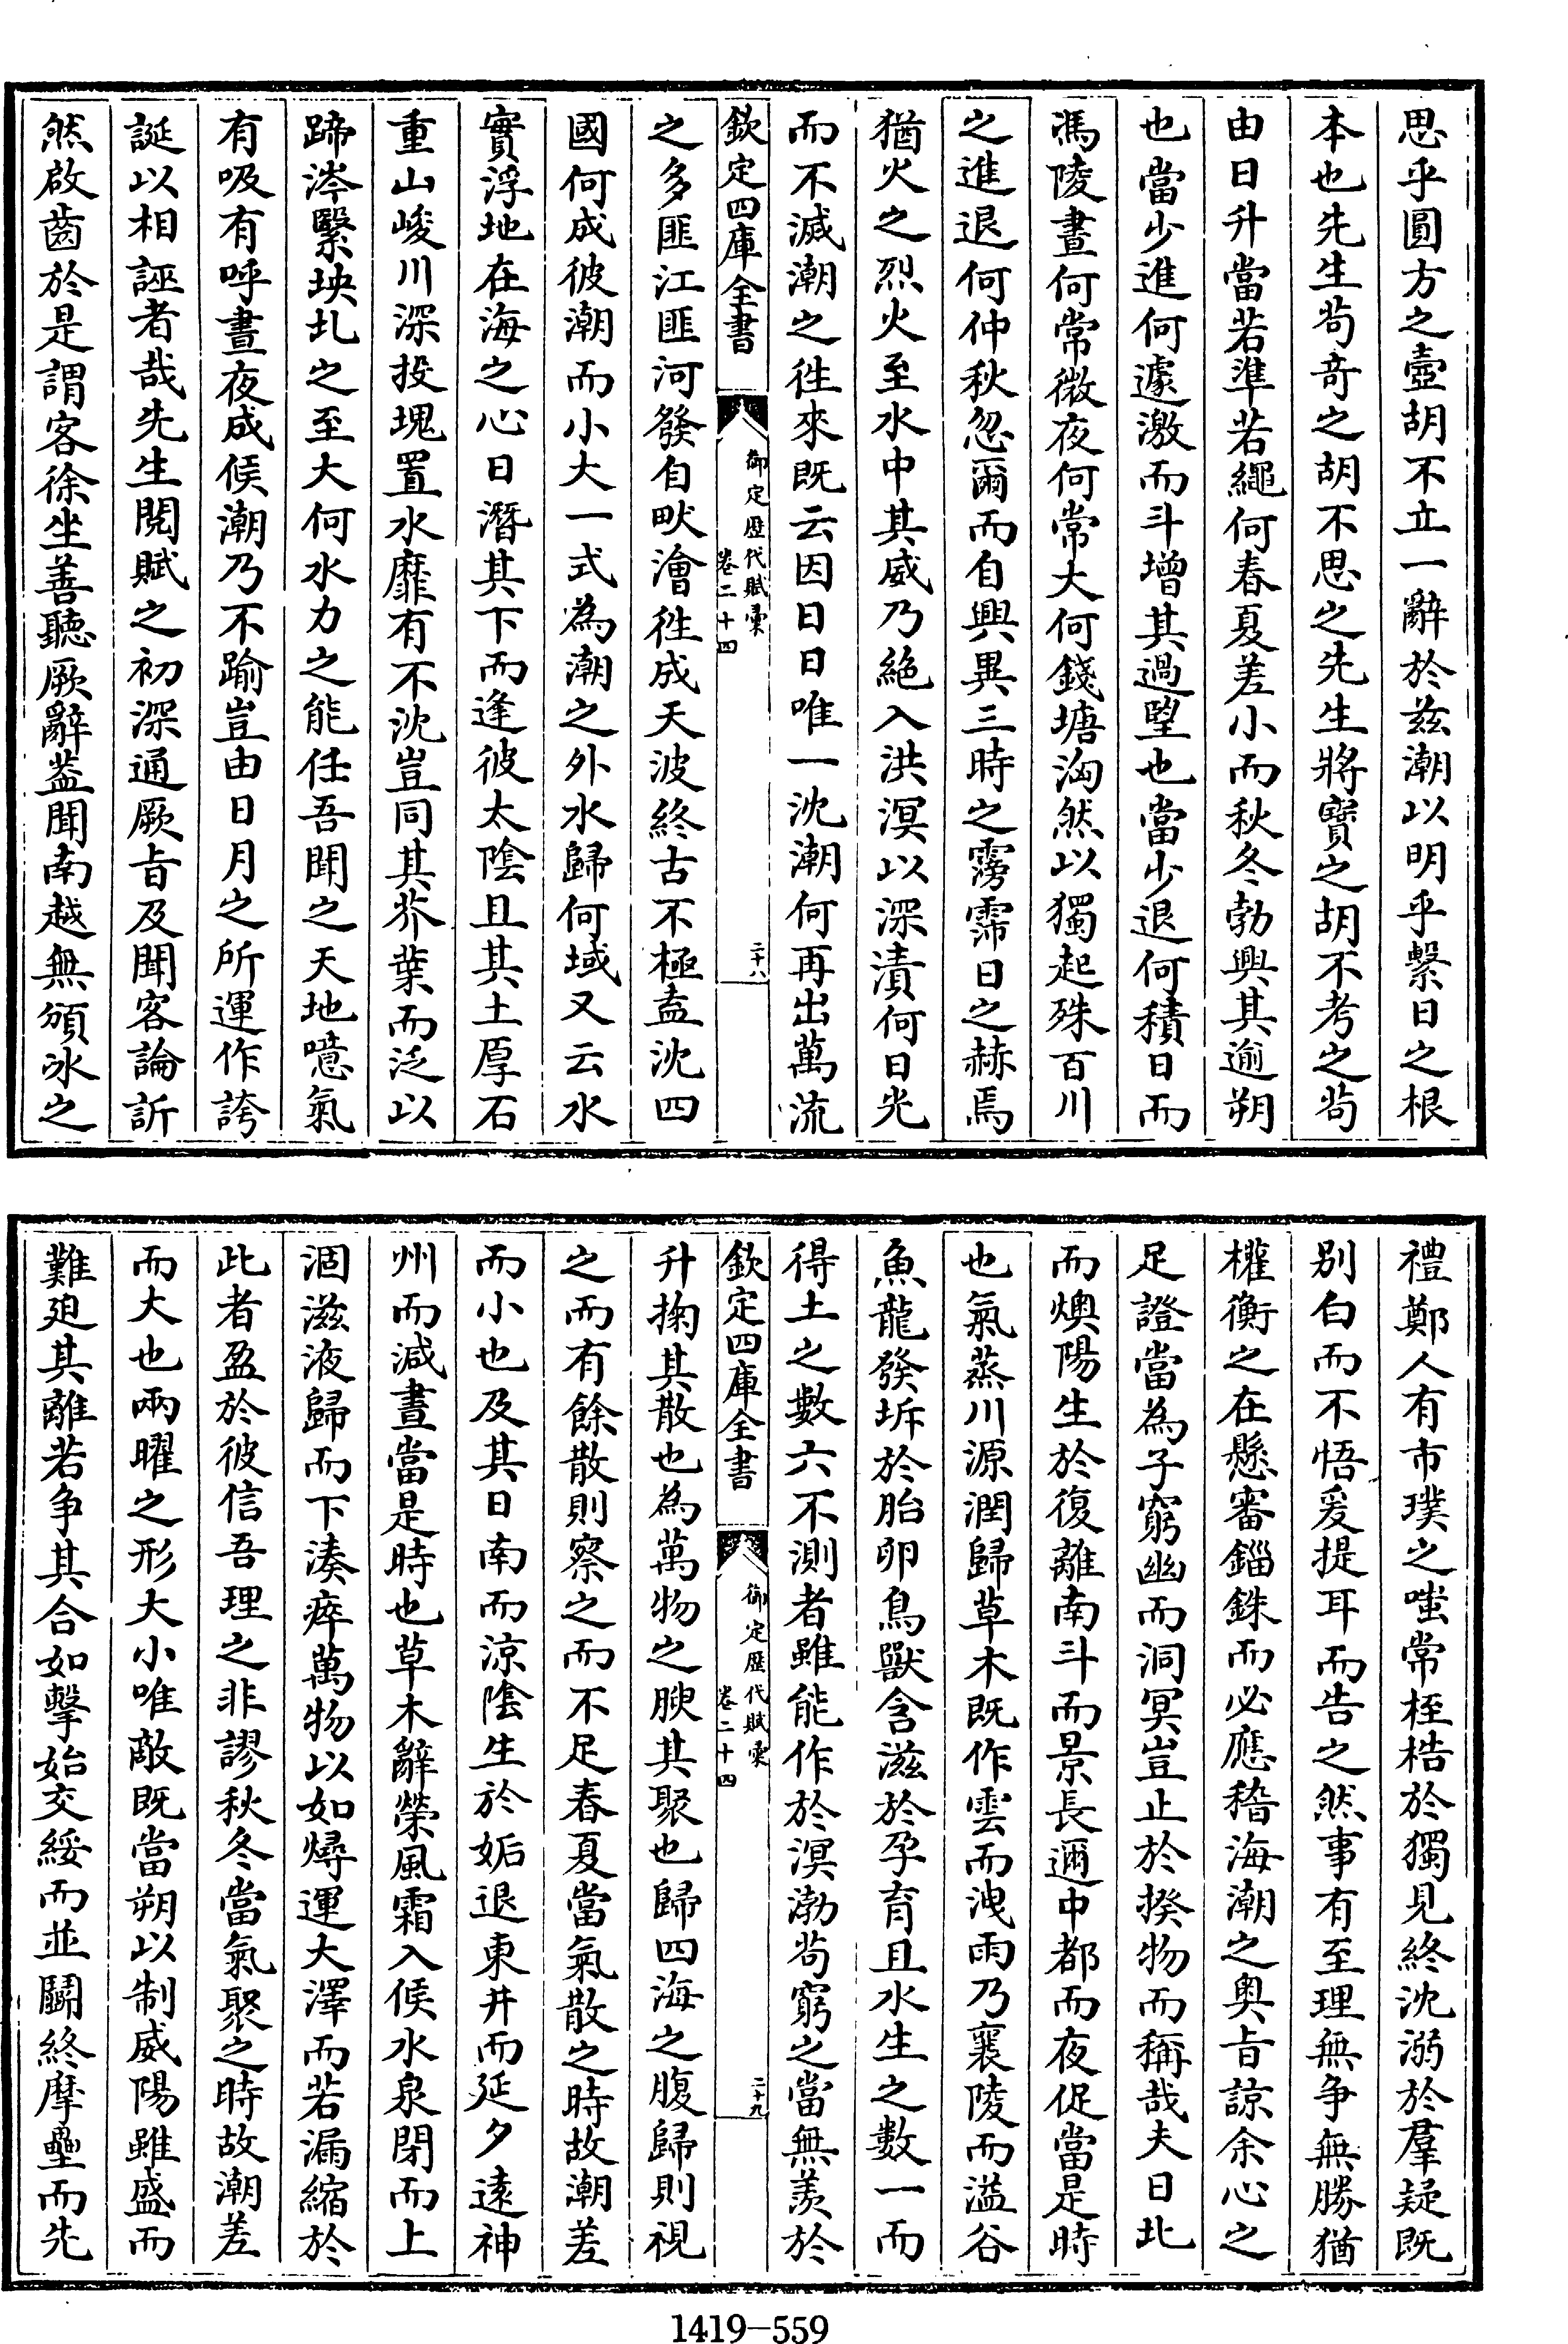 思乎圓方之壼胡不立一辭於兹潮以明乎繫日之根
本也先生茍竒之胡不思之先生將寶之胡不考之茍
由日升當若準若繩何春夏差小而秋冬勃興其逾朔
也當少進何遽激而斗增其過朢也當少退何積日而
馮陵晝何常微夜何常大何錢塘洶然以獨起殊百川
之進退何仲秋忽爾而自興異三時之霶霈日之赫焉
猶火之烈火至水中其威乃絶入洪溟以深漬何日光
而不滅潮之徃來既云因日日唯一沈潮何再出萬流
欽定四庫全書
御定歴代賦彚
卷二十四
二十八
之多匪江匪河發自畎澮徃成天波終古不極盍沈四
國何成彼潮而小大一式為潮之外水歸何域又云水
實浮地在海之心日潛其下而逢彼太陰且其土厚石
重山峻川深投塊置水靡有不沈豈同其芥葉而泛以
蹄涔繄坱圠之至大何水力之能任吾聞之天地噫氣
有吸有呼晝夜成候潮乃不踰豈由日月之所運作誇
誕以相誣者哉先生閲賦之初深通厥㫖及聞客論訢
然啟齒於是謂客徐坐善聽厥辭葢聞南越無頒冰之
禮鄭人有市璞之嗤常桎梏於獨見終沈溺於羣疑既
别白而不悟爰提耳而告之然事有至理無争無勝猶
權衡之在懸審錙銖而必應稽海潮之奥㫖諒余心之
足證當為子窮幽而洞冥豈止於揆物而稱哉夫日北
而燠陽生於復離南斗而景長邇中都而夜促當是時
也氣蒸川源潤歸草木既作雲而洩雨乃襄陵而溢谷
魚龍發坼於胎卵鳥獸含滋於孕育且水生之數一而
得土之數六不測者雖能作於溟渤茍窮之當無羨於
欽定四庫全書
御定歴代賦彚
卷二十四
二十九
升掬其散也為萬物之腴其聚也歸四海之腹歸則視
之而有餘散則察之而不足春夏當氣散之時故潮差
而小也及其日南而涼陰生於姤退東井而延夕遠神
州而減晝當是時也草木辭榮風霜入候水泉閉而上
涸滋液歸而下湊瘁萬物以如燖運大澤而若漏縮於
此者盈於彼信吾理之非謬秋冬當氣聚之時故潮差
而大也兩曜之形大小唯敵既當朔以制威陽雖盛而
難廹其離若争其合如擊始交綏而並鬭終摩壘而先
1419—559